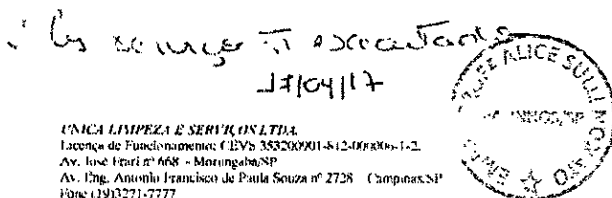 17/04/17
ALICE SULLI
UNICA LIMPEZA E SERVIÇOS LTDA.
Licença de Funcionamento: CEVS 353200901-812-000006-1-2.
Av. José Frari nº 668 - Morungaba/SP
Av. Eng. Antonio Francisco de Paula Souza nº 2728 Campinas/SP
Fone (19)3271-7777